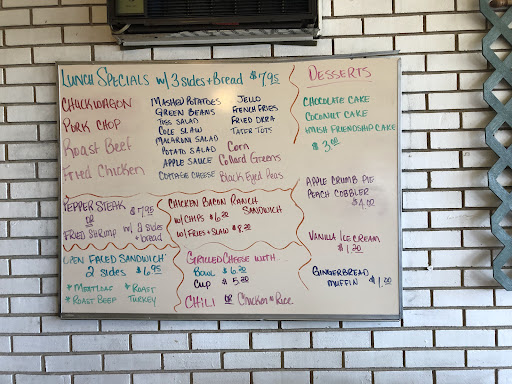 LUNCH SPECIALS w/ 3 sides + Bread $7.95
CHUCKWAGON
PORK CHOP
Roast Beef
Fried Chicken
MASHED POTATOES
GREEN BEANS
TOSS SALAD
COLE SLAW
MACARONI SALAD
POTATO SALAD
APPLE SAUCE
COTTAGE CHEESE
JELLO
FRENCH FRIES
FRIED OKRA
TATER TOTS
Corn
Collard Greens
Black Eyed Peas
DESSERTS
CHOCOLATE CAKE
COCONUT CAKE
AMISH FRIENDSHIP CAKE
$3.00
APPLE CRUMB PIE
PEACH COBBLER
$4.00
VANILLA ICE CREAM
$1.20
GINGERBREAD
MUFFIN $1.00
PEPPER STEAK
OR $7.95
FRIED SHRIMP w/ 2 sides
+ bread
CHICKEN BACON RANCH
SANDWICH
w/ CHIPS $6.20
w/ FRIES + SLAW $8.20
OPEN FACED SANDWICH
2 sides $6.95
* MEATLOAF * ROAST
* ROAST BEEF TURKEY
GRILLED CHEESE WITH
Bowl $6.20
CUP $5.20
CHILI OR Chicken n Rice